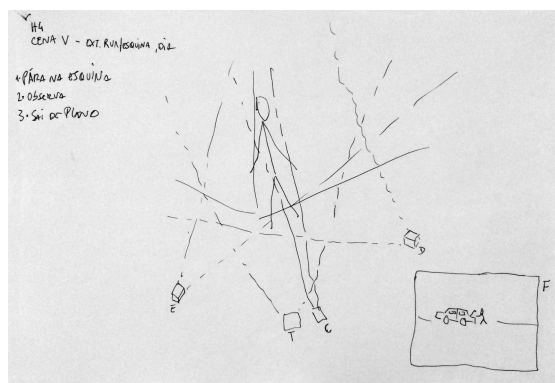 H4
CENA V - EXT. RUA/ESQUINA, DIA
1•PÁRA NA ESQUINA
2•OBSERVA
3•SAI DE PLANO
D
F
E
T
G